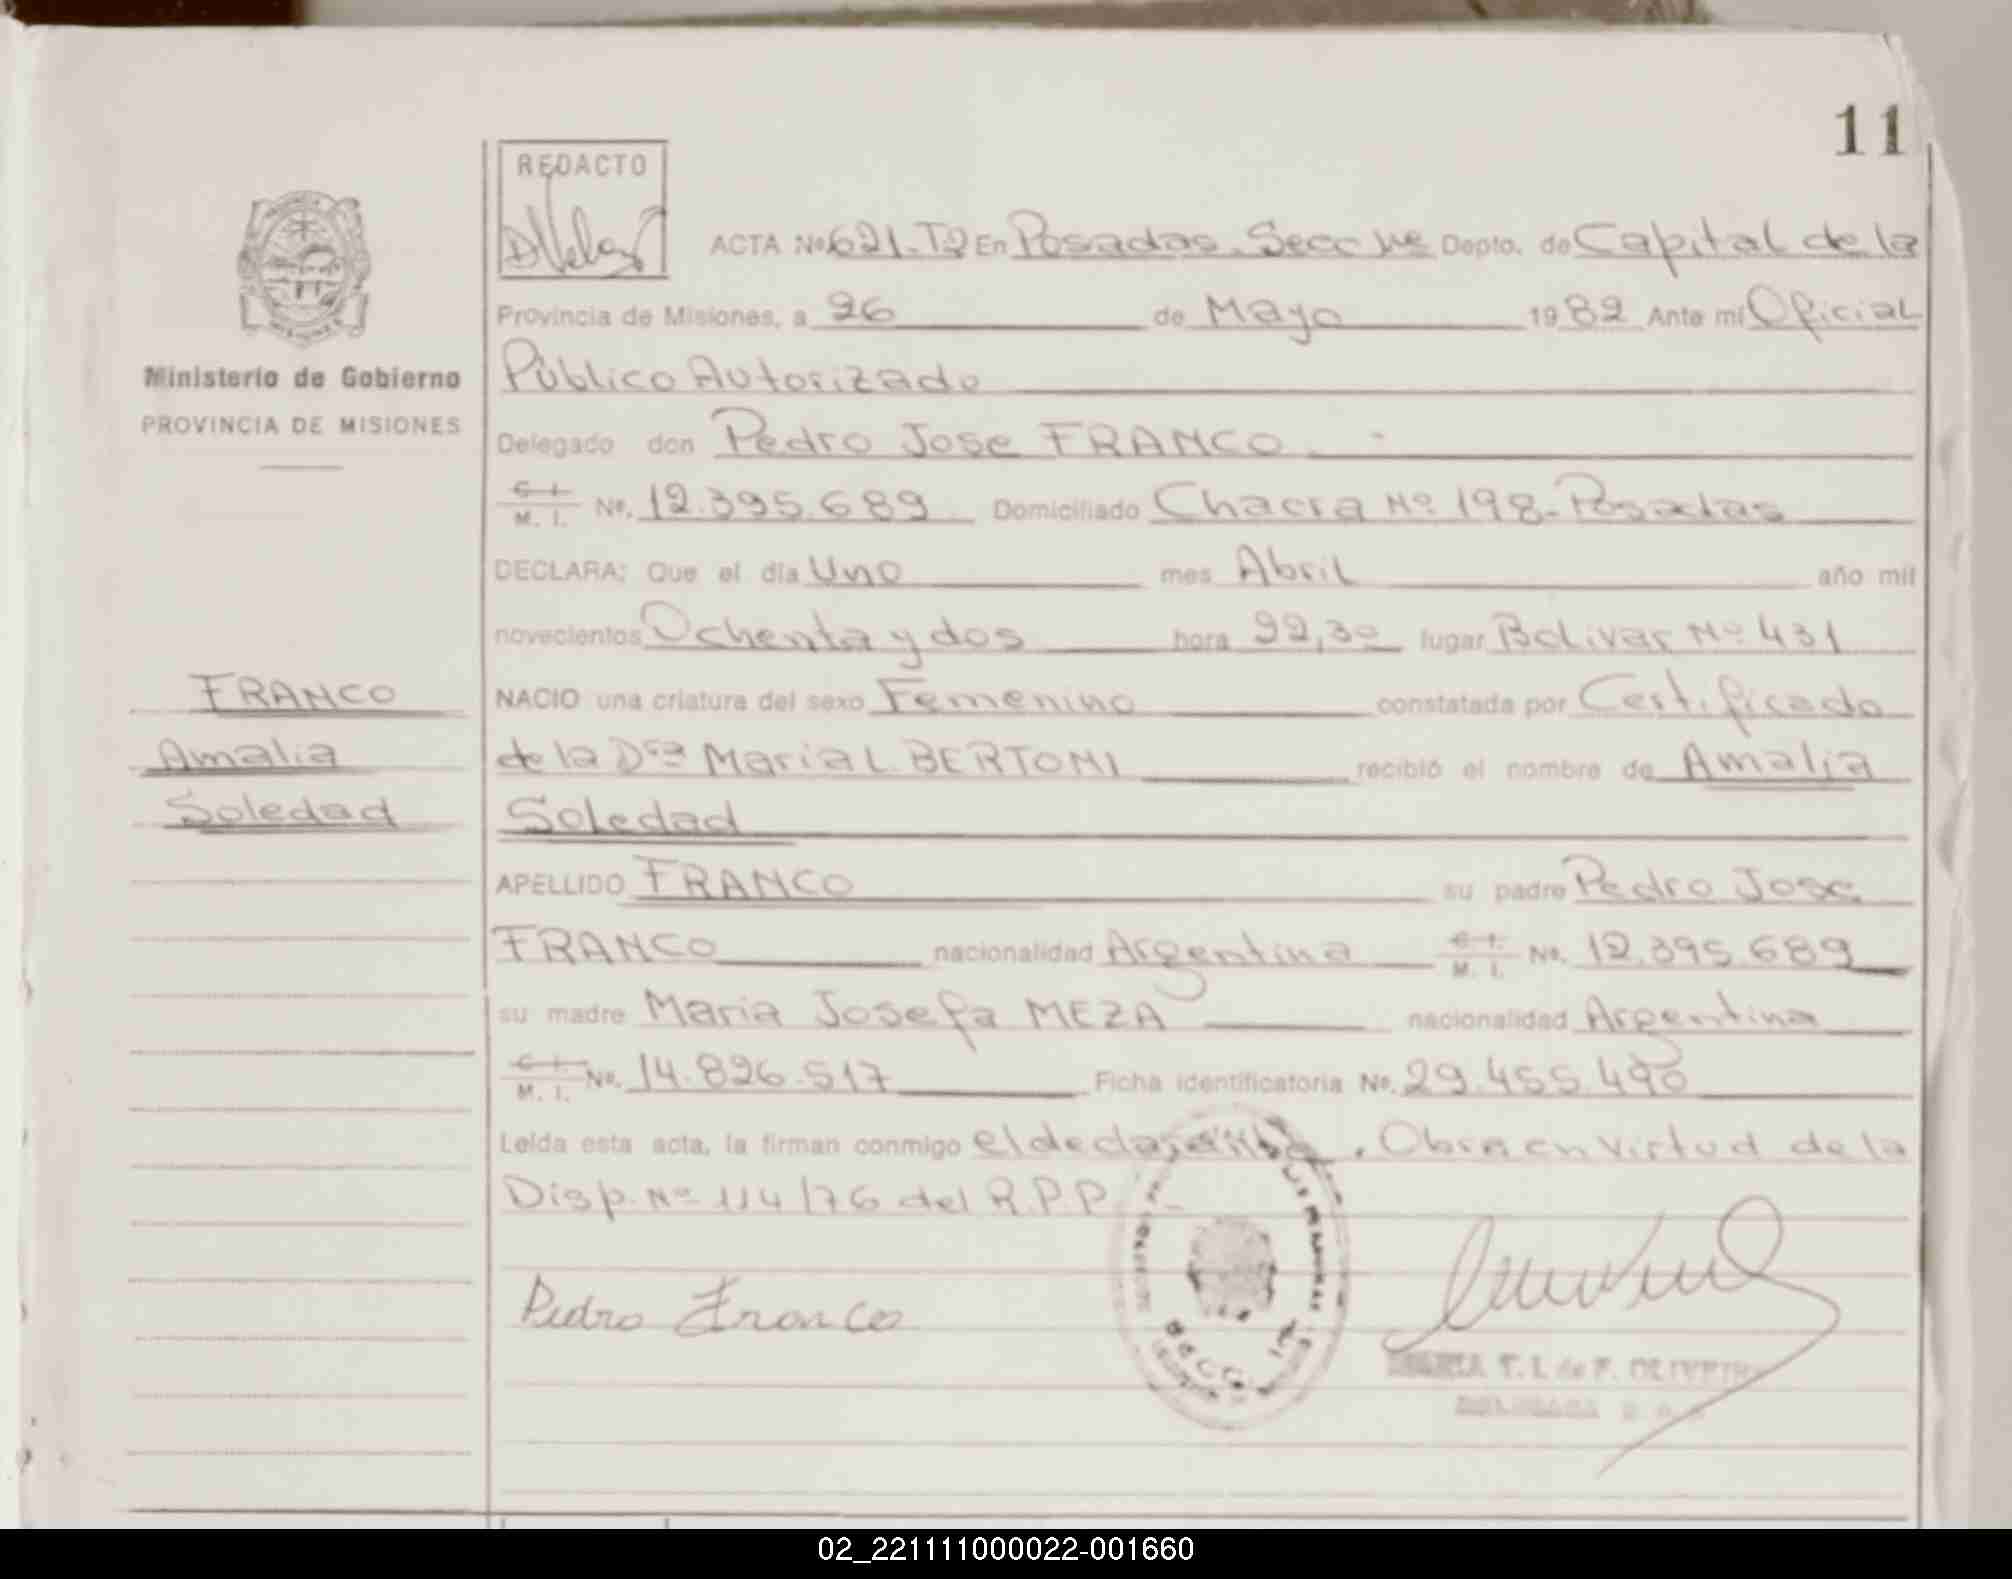 11
REDACTO
ACTA Nº 621-T2 En Posadas - Secc 1ra Depto. de Capital de la
Provincia de Misiones, a 26 de Mayo 1982 Ante mi Oficial
Ministerio de Gobierno
Público Autorizado
PROVINCIA DE MISIONES
Delegado don Pedro Jose FRANCO
C. I. M. I. Nº. 12.395.689 Domiciliado Chacra Nº 198-Posadas
DECLARA: Que el día Uno mes Abril año mil
novecientos Ochenta y dos hora 22,30 lugar Bolivar Nº 431
FRANCO
NACIO una criatura del sexo Femenino constatada por Certificado
Amalia
de la Dra Maria L. BERTONI recibió el nombre de Amalia
Soledad
Soledad
APELLIDO FRANCO su padre Pedro Jose
FRANCO nacionalidad Argentina C. I. M. I. Nº. 12.395.689
su madre Maria Josefa MEZA nacionalidad Argentina
C. I. M. I. Nº. 14.826.517 Ficha identificatoria Nº. 29.455.490
Leída esta acta, la firman conmigo el declarante. Obra en virtud de la
Disp. Nº 114/76 del R.P.P.
Pedro Franco
T. I. de F. OLIVEIRA
02_221111000022-001660